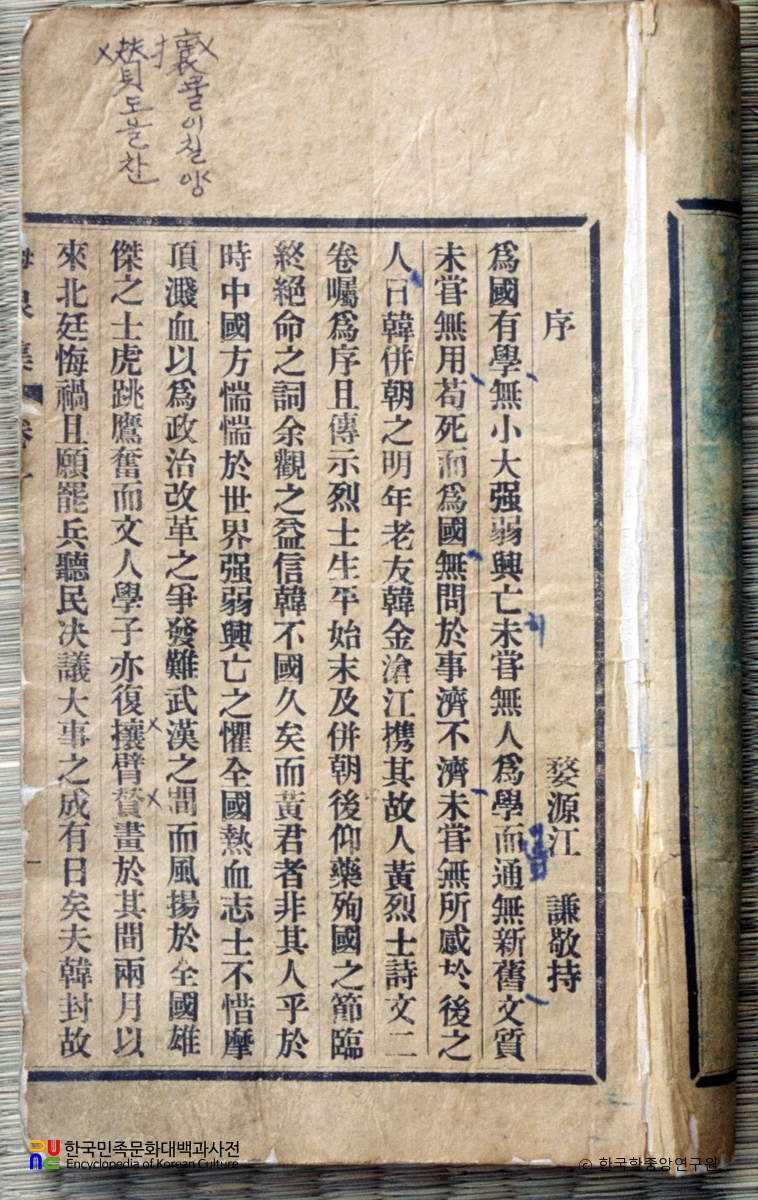 攘 물이칠 양
贊 도울 찬
序
婺源江 謙敬持
爲國有學無小大强弱興亡未甞無人爲學而通無新舊文質
未甞無用苟死而爲國無問於事濟不濟未甞無所感於後之
人日韓併朝之明年老友韓金滄江携其故人黃烈士詩文二
卷囑爲序且傳示烈士生平始末及併朝後仰藥殉國之節臨
終絕命之詞余觀之益信韓不國久矣而黃君者非其人乎於
時中國方惴惴於世界强弱興亡之懼全國熱血志士不惜摩
頂濺血以爲政治改革之爭發難武漢之間而風揚於全國雄
傑之士虎跳鷹奮而文人學子亦復攘臂贊畫於其間兩月以
來北廷悔禍且願罷兵聽民决議大事之成有日矣夫韓封故
한국민족문화대백과사전
Encyclopedia of Korean Culture
© 한국학중앙연구원